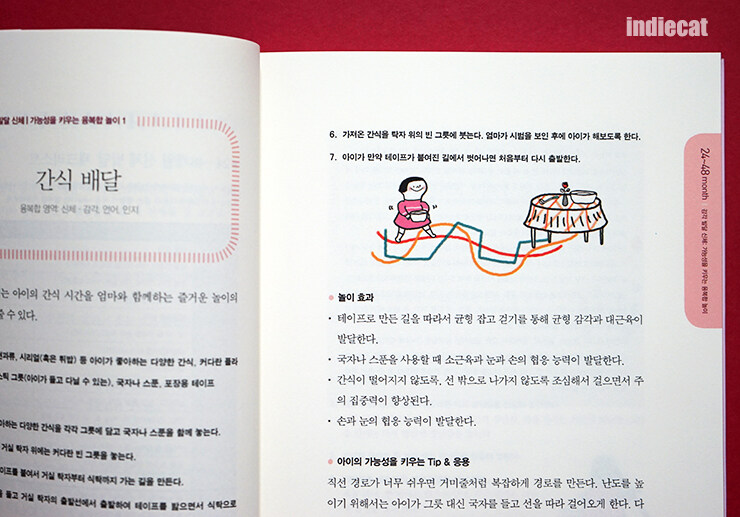 indiecat
발달 신체 | 가능성을 키우는 융복합 놀이 1
간식 배달
융복합 영역: 신체 - 감각, 언어, 인지
는 아이의 간식 시간을 엄마와 함께하는 즐거운 놀이의
수 있다.
시리얼(혹은 튀밥) 등 아이가 좋아하는 다양한 간식, 커다란 플라
스틱 그릇(아이가 들고 다닐 수 있는), 국자나 스푼, 포장용 테이프
하는 다양한 간식을 각각 그릇에 담고 국자나 스푼을 함께 놓는다.
거실 탁자 위에는 커다란 빈 그릇을 놓는다.
테이프를 붙여서 거실 탁자부터 식탁까지 가는 길을 만든다.
들고 거실 탁자의 출발선에서 출발하여 테이프를 밟으면서 식탁으로
6. 가져온 간식을 탁자 위의 빈 그릇에 붓는다. 엄마가 시범을 보인 후에 아이가 해보도록 한다.
7. 아이가 만약 테이프가 붙여진 길에서 벗어나면 처음부터 다시 출발한다.
● 놀이 효과
• 테이프로 만든 길을 따라서 균형 잡고 걷기를 통해 균형 감각과 대근육이
발달한다.
• 국자나 스푼을 사용할 때 소근육과 눈과 손의 협응 능력이 발달한다.
• 간식이 떨어지지 않도록, 선 밖으로 나가지 않도록 조심해서 걸으면서 주
의 집중력이 향상된다.
• 손과 눈의 협응 능력이 발달한다.
● 아이의 가능성을 키우는 Tip & 응용
직선 경로가 너무 쉬우면 거미줄처럼 복잡하게 경로를 만든다. 난도를 높
이기 위해서는 아이가 그릇 대신 국자를 들고 선을 따라 걸어오게 한다. 다
24~48 month
감각 발달 신체 | 가능성을 키우는 융복합 놀이